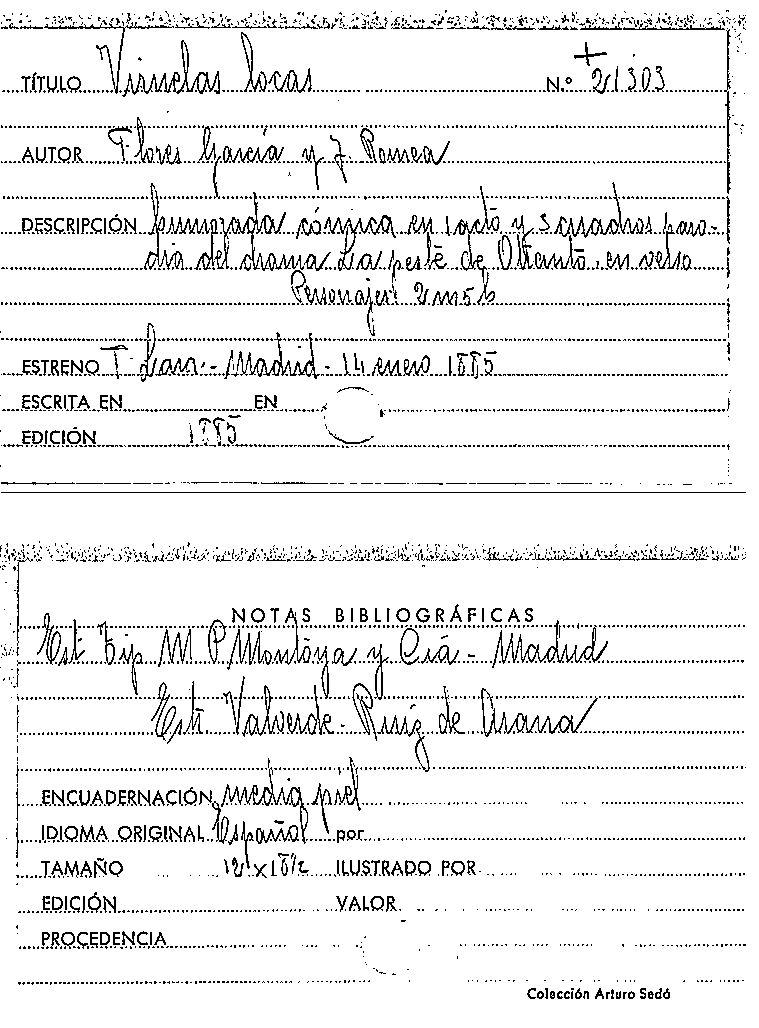 TÍTULO Viruelas locas N.º + 21303
AUTOR Flores García y J. Romea
DESCRIPCIÓN humorada cómica en 1 acto y 3 cuadros paro-
dia del drama La peste de Otranto, en verso
Personajes 2m 5h
ESTRENO T. Lara.- Madrid - 14 enero 1885
ESCRITA EN EN
EDICIÓN 1885
NOTAS BIBLIOGRÁFICAS
Est Tip M P Montoya y Cía - Madrid
Valverde - Ruiz de Arana
ENCUADERNACIÓN media piel
IDIOMA ORIGINAL Español por
TAMAÑO ILUSTRADO POR
EDICIÓN VALOR
PROCEDENCIA
Colección Arturo Sedó